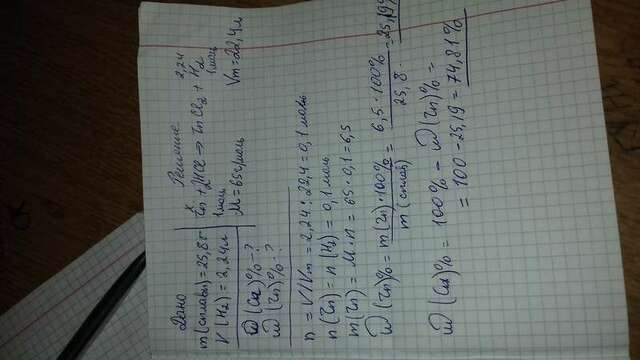 Дано
Решение
m(сплава) = 25,8 г
V(H2) = 2,24 л
ω(Cu)% - ?
ω(Zn)% - ?
x
2,24
Zn + 2HCl => ZnCl2 + H2
1 моль
1 моль
M = 65 г/моль
Vm = 22,4 л
n = V/Vm = 2,24 : 22,4 = 0,1 моль
n(Zn) = n(H2) = 0,1 моль
m(Zn) = M · n = 65 · 0,1 = 6,5
ω(Zn)% = m(Zn) · 100% / m(сплав) = 6,5 · 100% / 25,8 = 25,19%
ω(Cu)% = 100% - ω(Zn)% =
= 100 - 25,19 = 74,81%